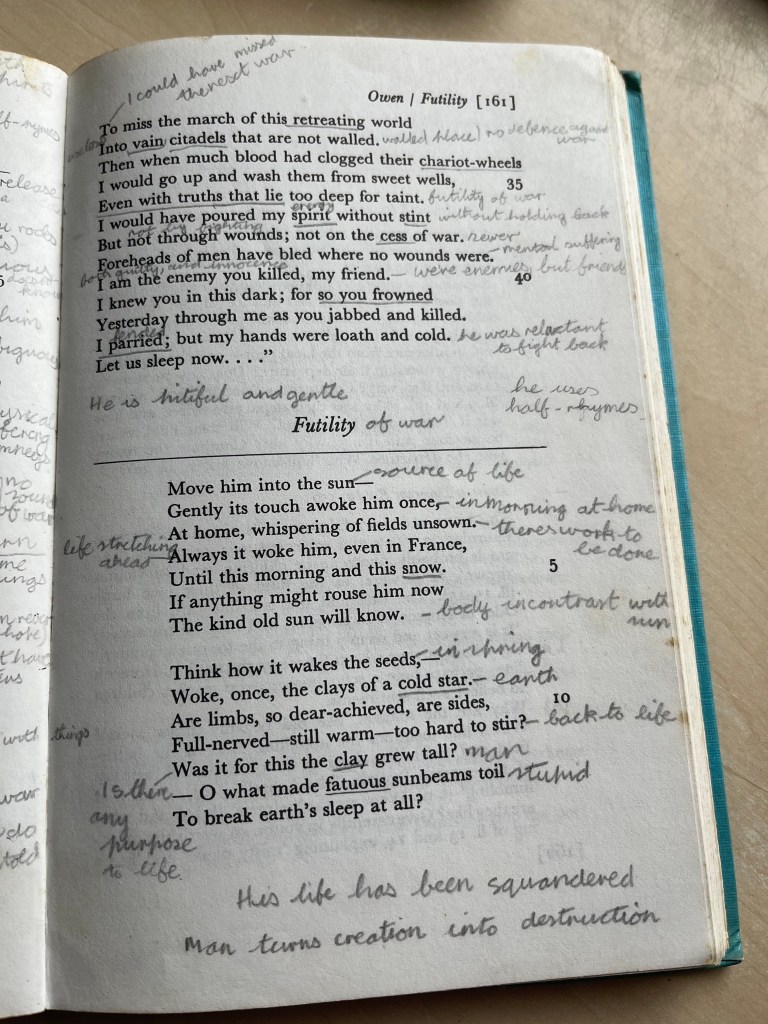 I could have missed
the next war
Owen | Futility [161]
To miss the march of this retreating world
Into vain citadels that are not walled. walled place) no defence against
war
Then when much blood had clogged their chariot-wheels
I would go up and wash them from sweet wells, 35
Even with truths that lie too deep for taint. futility of war
energy
I would have poured my spirit without stint without holding back
not by fighting
But not through wounds; not on the cess of war. sewer
Foreheads of men have bled where no wounds were. - mental suffering
both guilty and innocence
I am the enemy you killed, my friend. - we're enemies, but friends
40
I knew you in this dark; for so you frowned
Yesterday through me as you jabbed and killed.
fended
I parried; but my hands were loath and cold. he was reluctant
to fight back
Let us sleep now. . . ."
He is pitiful and gentle
he uses
half-rhymes
Futility of war
Move him into the sun— source of life
Gently its touch awoke him once,- in morning at home
At home, whispering of fields unsown.- theres work to
be done
life stretching
ahead
Always it woke him, even in France,
Until this morning and this snow. 5
If anything might rouse him now
The kind old sun will know. - body in contrast with
sun
Think how it wakes the seeds,— in spring
Woke, once, the clays of a cold star.- earth
Are limbs, so dear-achieved, are sides, 10
Full-nerved—still warm—too hard to stir?- back to life
Was it for this the clay grew tall? man
— O what made fatuous sunbeams toil stupid
To break earth's sleep at all?
Is there
any
purpose
to life.
His life has been squandered
Man turns creation into destruction
half-rhymes
release
him
with things
war
do
told